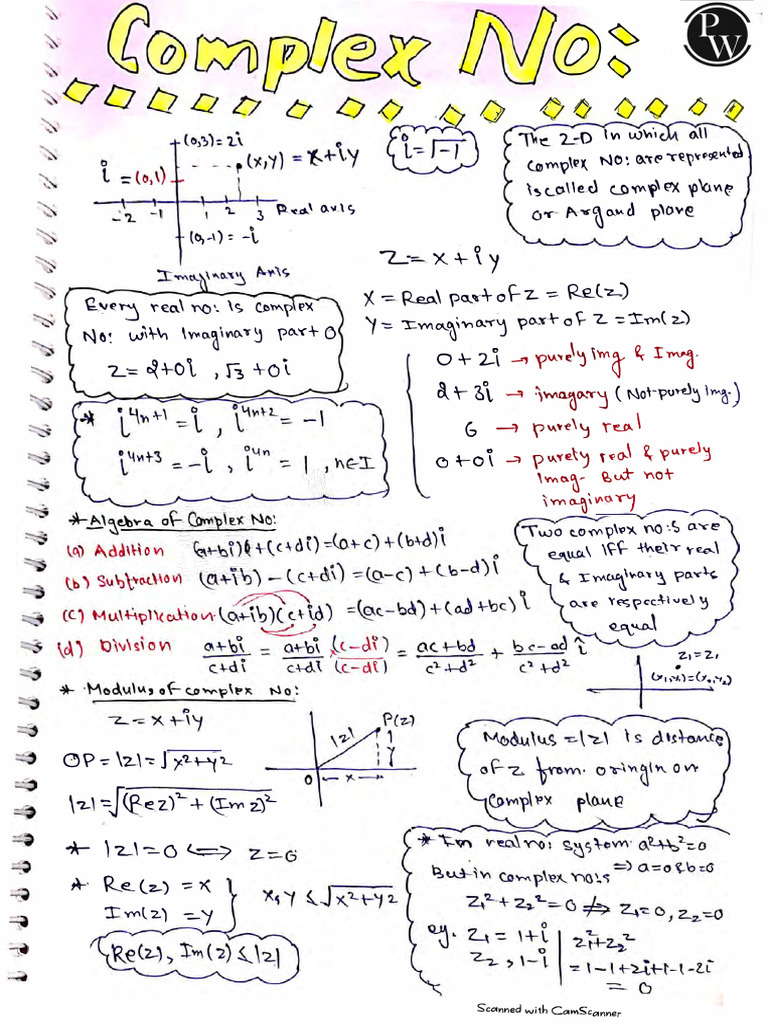 Complex No:
PW
(0,3)=2i
(x,y) = x+iy
i = (0,1)
-2 -1 1 2 3 Real axis
(0,-1) = -i
Imaginary Axis
i=√-1
The 2-D in which all
complex No: are represented
is called complex plane
or Argand plane
Z = x + iy
X = Real part of Z = Re(z)
Y = Imaginary part of Z = Im(z)
Every real no: is complex
No: with Imaginary part 0
Z = 2+0i , √3 +0i
0+2i → purely img & Imag.
2+3i → imagary (Not-purely Img.)
6 → purely real
0+0i → purely real & purely
Imag- But not
imaginary
* i^{4n+1} = i , i^{4n+2} = -1
i^{4n+3} = -i , i^{4n} = 1 , n∈I
* Algebra of Complex No:
(a) Addition (a+bi)+(c+di)=(a+c)+(b+d)i
(b) Subtraction (a+ib)-(c+di)=(a-c)+(b-d)i
(c) Multiplication (a+ib)(c+id) = (ac-bd)+(ad+bc)i
(d) Division (a+bi)/(c+di) = (a+bi)/(c+di) × (c-di)/(c-di) = (ac+bd)/(c²+d²) + (bc-ad)/(c²+d²) i
Two complex no:s are
equal IFF their real
& Imaginary parts
are respectively
equal
* Modulus of complex No:
Z = x+iy
OP = |z| = √x²+y²
|z| = √(Re z)² + (Im z)²
P(z)
|z|
y
O x
Modulus = |z| is distance
of z from oringin on
Complex plane
* |z| = 0 ⟺ z = 0
* Re(z) = x
Im(z) = y
x, y ≤ √x²+y²
Re(z), Im(z) ≤ |z|
* In real no: system a²+b²=0
⇒ a=0 & b=0
But in complex no:s
Z₁²+Z₂²=0 ⇏ Z₁=0, Z₂=0
eg. Z₁ = 1+i
Z₂, 1-i
Z₁²+Z₂²
=1-1+2i+1-1-2i
= 0
Scanned with CamScanner